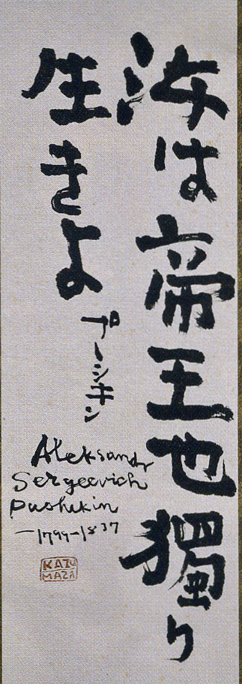 汝は帝王也獨り
生きよ
プーシキン
Aleksandr
Sergeevich
Pushkin
—1799—1837
KAZU
MAZA